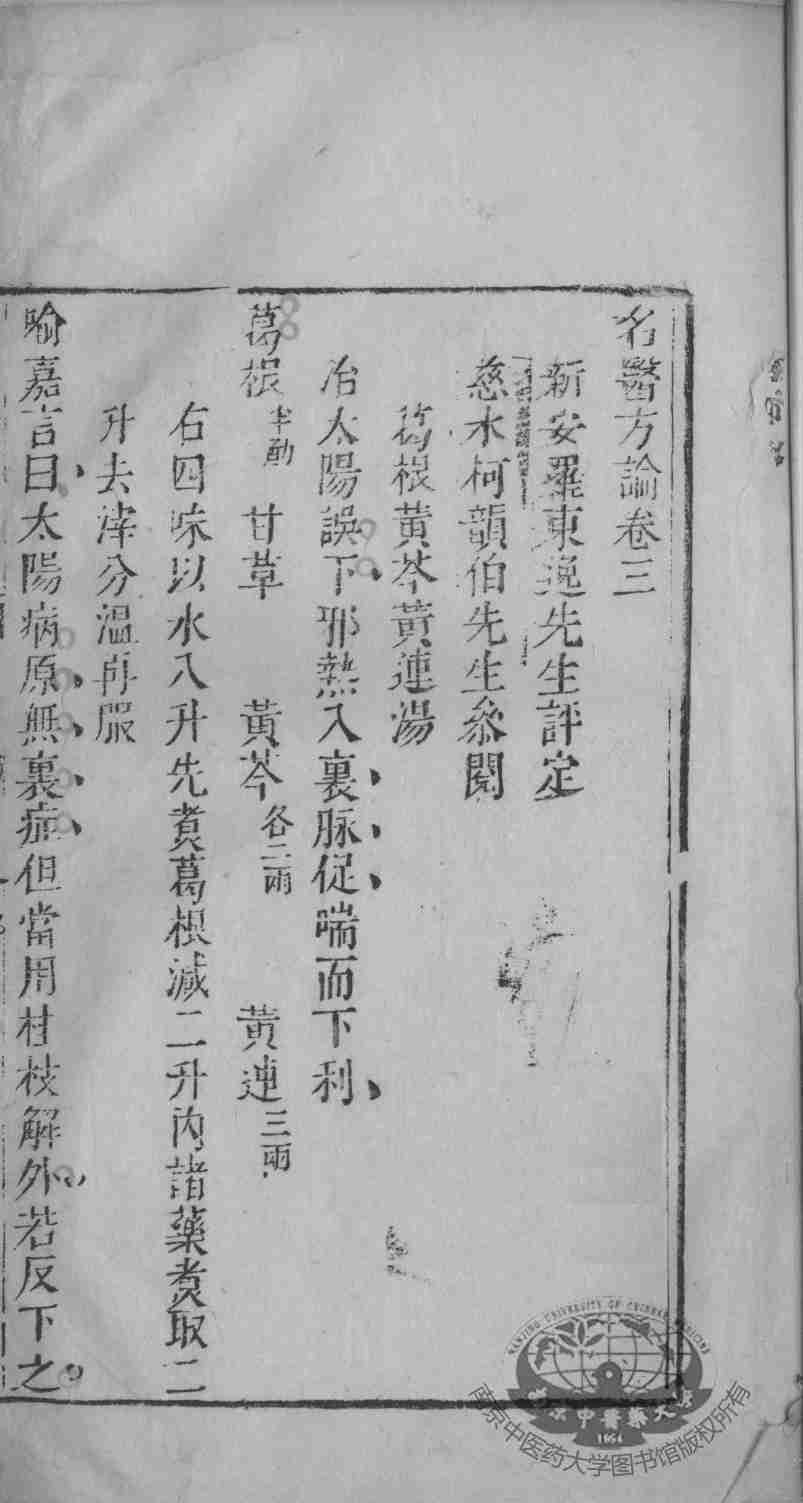 名醫方論卷三
新安羅東逸先生評定
慈水柯韻伯先生叅閱
葛根黃芩黃連湯
治太陽誤下邪熱入裏脉促喘而下利
葛根半觔 甘草 黃芩各二兩 黃連三兩
右四味以水八升先煑葛根減二升內諸藥煑取二
升去滓分溫再服
喻嘉言曰太陽病原無裏症但當用桂枝解外若反下之
南京中医药大学图书馆版权所有
NANJING UNIVERSITY OF CHINESE MEDICINE
南京中醫藥大學
1954